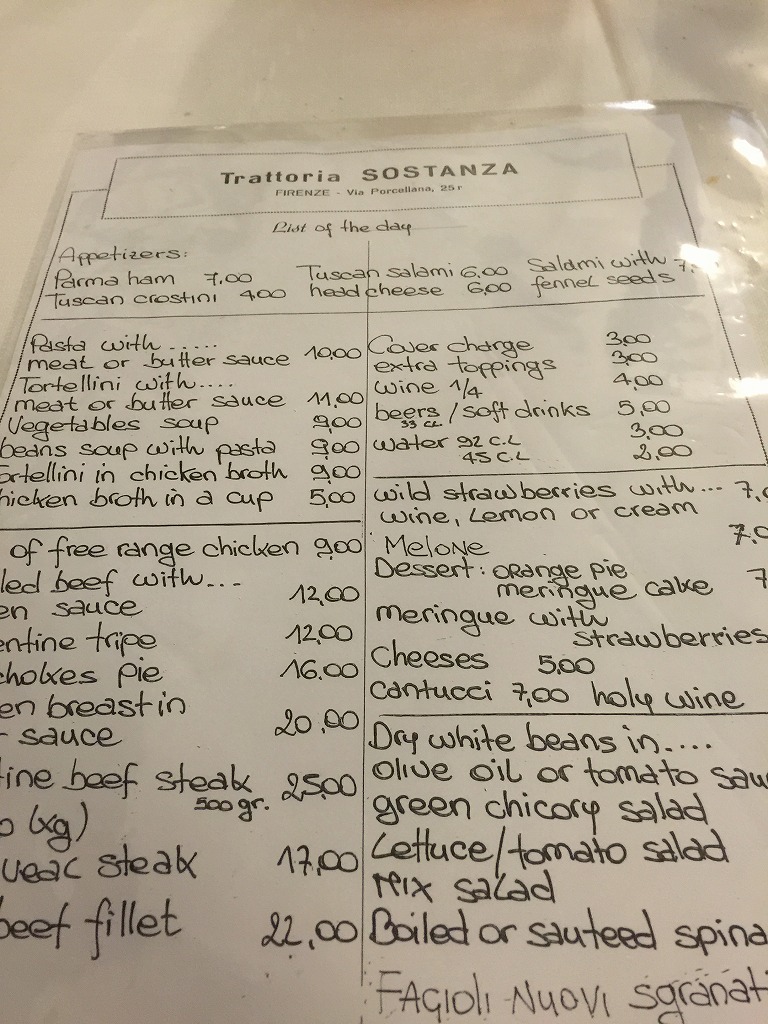 Trattoria SOSTANZA
FIRENZE - Via Porcellana, 25 r
List of the day
Appetizers:
Parma ham 7,00 Tuscan salami 6,00 Salami with 7,
Tuscan crostini 4,00 head cheese 6,00 fennel seeds
Pasta with .....
meat or butter sauce 10,00
Tortellini with....
meat or butter sauce 11,00
Vegetables soup 9,00
beans soup with pasta 9,00
ortellini in chicken broth 9,00
hicken broth in a cup 5,00
of free range chicken 9,00
led beef with...
en sauce 12,00
entine tripe 12,00
chokes pie 16,00
en breast in
sauce 20,00
ine beef steak 25,00
500 gr.
o (kg)
steak 17,00
beef fillet 22,00
Cover charge 3,00
extra toppings 3,00
wine 1/4 4,00
beers / soft drinks 5,00
33 CL
water 92 C.L 3,00
45 C.L 2,00
wild strawberries with... 7,0
wine, lemon or cream
Melone 7,0
Dessert: orange pie
meringue cake 7
meringue with
strawberries
Cheeses 5,00
Cantucci 7,00 holy wine
Dry white beans in....
olive oil or tomato sau
green chicory salad
Lettuce/tomato salad
Mix salad
Boiled or sauteed spina
FAGIOLI NUOVI sgranati